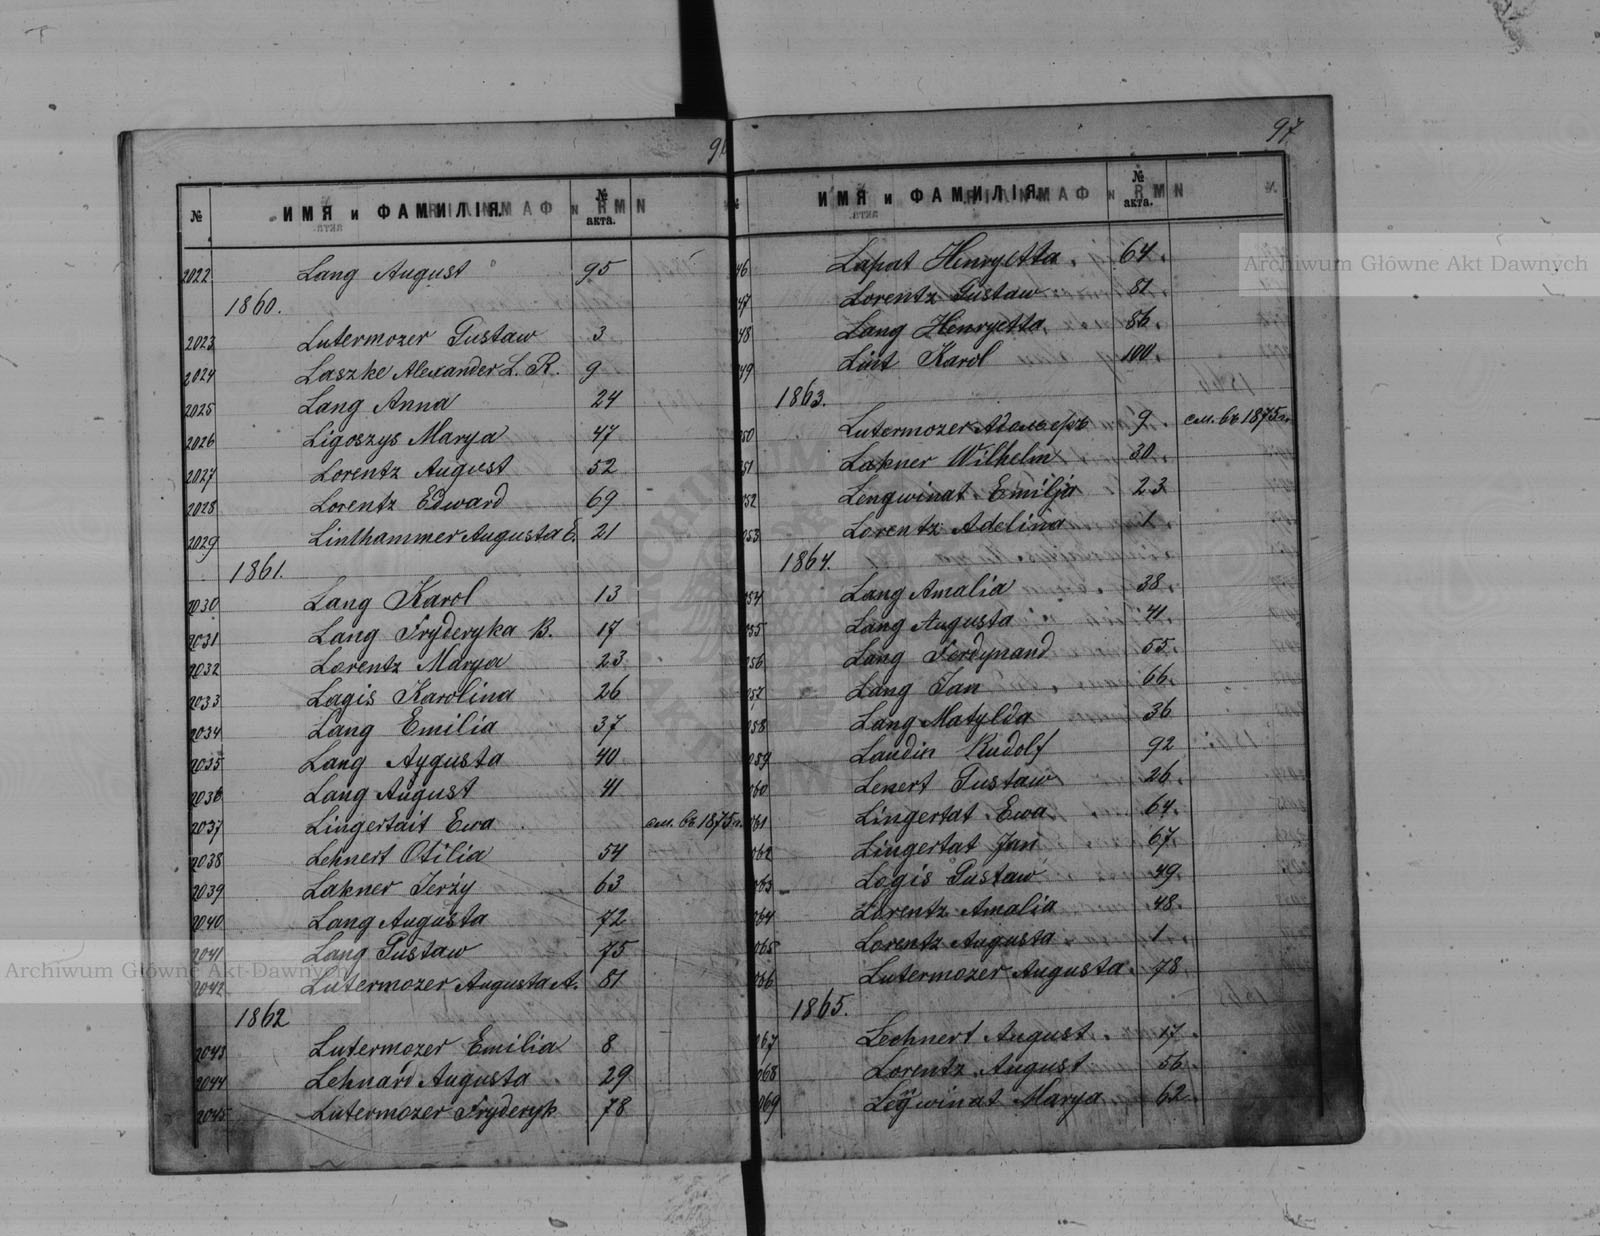 97
№ ИМЯ и ФАМИЛІЯ. № акта.
2022 Lang August 95
1860.
2023 Lutermozer Gustaw 3
2024 Laszke Alexander L. R. 9
2025 Lang Anna 24
2026 Ligoszys Marya 47
2027 Lorentz August 52
2028 Lorentz Edward 69
2029 Linthammer Augusta E. 21
1861.
2030 Lang Karol 13
2031 Lang Fryderyka B. 17
2032 Lorentz Marya 23
2033 Lagis Karolina 26
2034 Lang Emilia 37
2035 Lang Aygusta 40
2036 Lang August 41
2037 Lingertait Ewa см. въ 1875 г.
2038 Lehnert Otilia 54
2039 Lakner Jerży 63
2040 Lang Augusta 72
2041 Lang Gustaw 75
2042 Lutermozer Augusta A. 81
1862
2043 Lutermozer Emilia 8
2044 Lehnart Augusta 29
2045 Lutermozer Fryderyk 78
ИМЯ и ФАМИЛІЯ. № акта.
46 Lapat Henryetta 64
47 Lorentz Gustaw 81
48 Lang Henryetta 86
49 Lint Karol 100
1863.
50 Lutermozer 9 см. въ 1875 г.
51 Lakner Wilhelm 30
52 Lengwinat Emilja 23
053 Lorentz Adelina 1
1864.
054 Lang Amalia 38
055 Lang Augusta 41
056 Lang Ferdynand 55
057 Lang Jan 66
058 Lang Matylda 36
059 Landin Rudolf 92
060 Lenert Gustaw 26
061 Lingertat Ewa 64
062 Lingertat Jan 67
063 Logis Gustaw 49
064 Lorentz Amalia 48
065 Lorentz Augusta 1
066 Lutermozer Augusta 78
1865.
067 Lechnert August 17
068 Lorentz August 56
069 Legwinat Marya 62
Archiwum Główne Akt Dawnych
Archiwum Główne Akt Dawnych